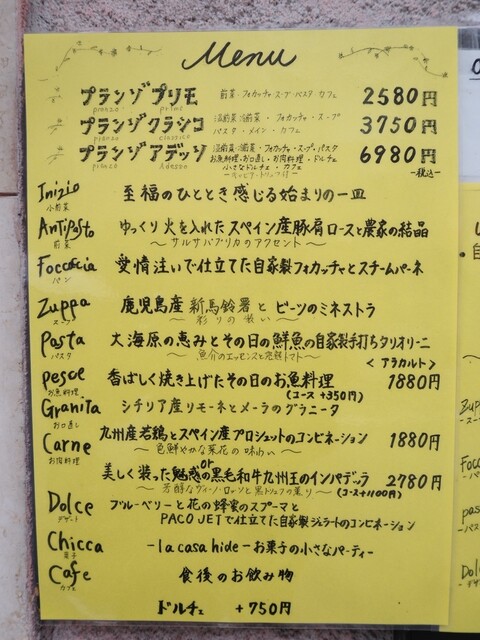 Menu
プランゾ プリモ 前菜・フォカッチャ・スープ・パスタ・カフェ 2580円
pranzo primo
プランゾ クラシコ 沿前菜・前菜・フォカッチャ・スープ 3750円
pranzo classico パスタ・メイン・カフェ
プランゾ アデッソ 6980円
pranzo Adesso お魚料理・お口直し・お肉料理・ドルチェ
小さなドルチェ・カフェ
-税込-
Inizio 至福のひととき感じる始まりの一皿
小前菜
AntiPasto ゆっくり火を入れたスペイン産豚肩ロースと農家の結晶
前菜 〜サルサパプリカのアクセント〜
Foccacia 愛情注いで仕立てた自家製フォカッチャとスチームパーネ
パン
Zuppa 鹿児島産 新馬鈴薯と ビーツのミネストラ
スープ 〜彩りの装い〜
Pasta 大海原の恵みとその日の鮮魚の自家製手打ちタリオリーニ
パスタ 〜魚介のエッセンスと完熟トマト〜
<アラカルト>
pesce 香ばしく焼き上げたその日のお魚料理 1880円
お魚料理 (コース+350円)
Granita シチリア産リモーネとメーラのグラニータ
お口直し
Carne 九州産若鶏とスペイン産プロシュットのコンビネーション 1880円
お肉料理 〜色鮮やかな菜花の味わい〜
or
美しく装った魅惑の黒毛和牛九州王のインパデッラ 2780円
(コース+1100円)
Dolce ブルーベリーと花の蜂蜜のスプーマと
デザート PACO JETで仕立てた自家製ジェラートのコンビネーション
Chicca -la casa hide-お菓子の小さなパーティー
菓子
Cafe 食後のお飲み物
カフェ
ドルチェ +750円